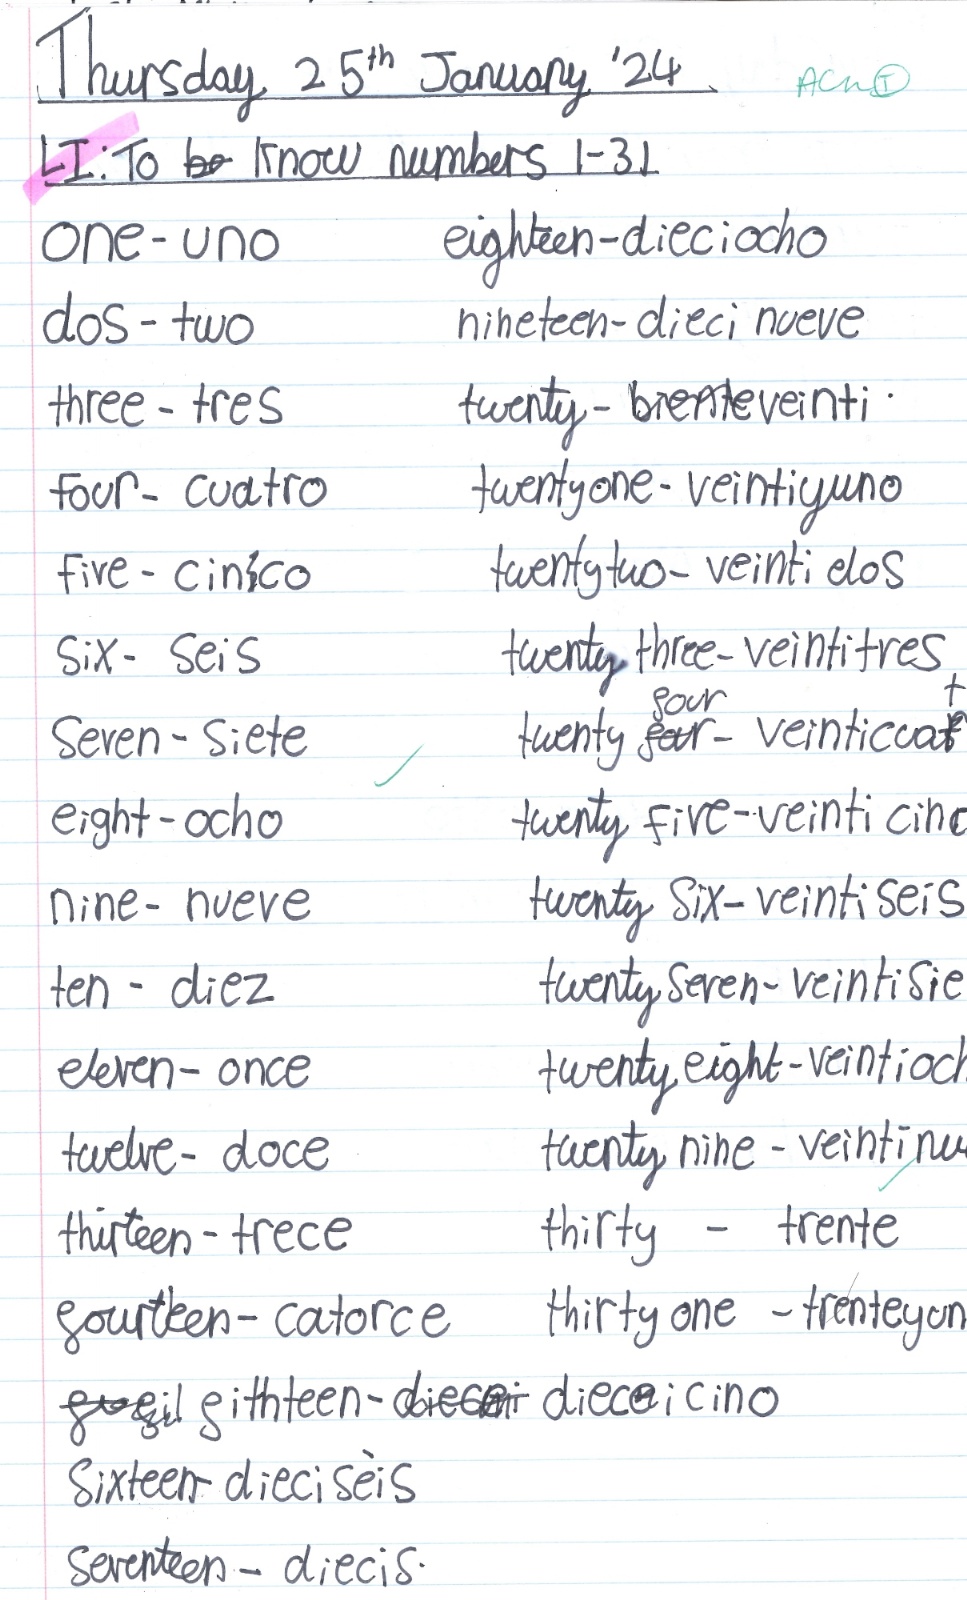 Thursday 25th January '24
ACh I
LI: To be know numbers 1-31
one - uno
dos - two
three - tres
four - cuatro
five - cinco
six - seis
seven - siete
eight - ocho
nine - nueve
ten - diez
eleven - once
twelve - doce
thirteen - trece
fourteen - catorce
fithteen - diecicino
sixteen - diecisèis
seventeen - diecis.
eighteen - dieciocho
nineteen - dieci nueve
twenty - veinti.
twentyone - veintiyuno
twentytwo - veinti dos
twenty three - veintitres
twenty four - veinticuat
twenty five - veinti cinc
twenty six - veinti seis
twenty seven - veintisie
twenty eight - veintioch
twenty nine - veintinu
thirty - trente
thirty one - trenteyun